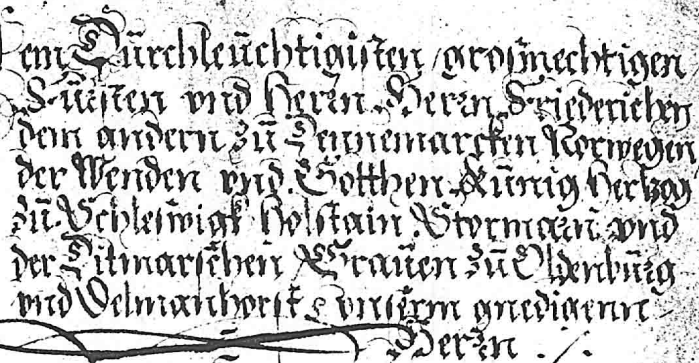 Dem Dürchleüchtigisten / grosmechtigen
Fürsten vnd Herrn Herrn Friederichen
dem andern zu Dennemarcken Norwegen
der Wenden vnd Gotthen Künig Hertzog
zu Schleswigk Holstain Stormarn vnd
der Ditmarschen Grauen zu Oldenbürg
vnd Delmanhorst vnserm gnedigenn
Herrn ./.